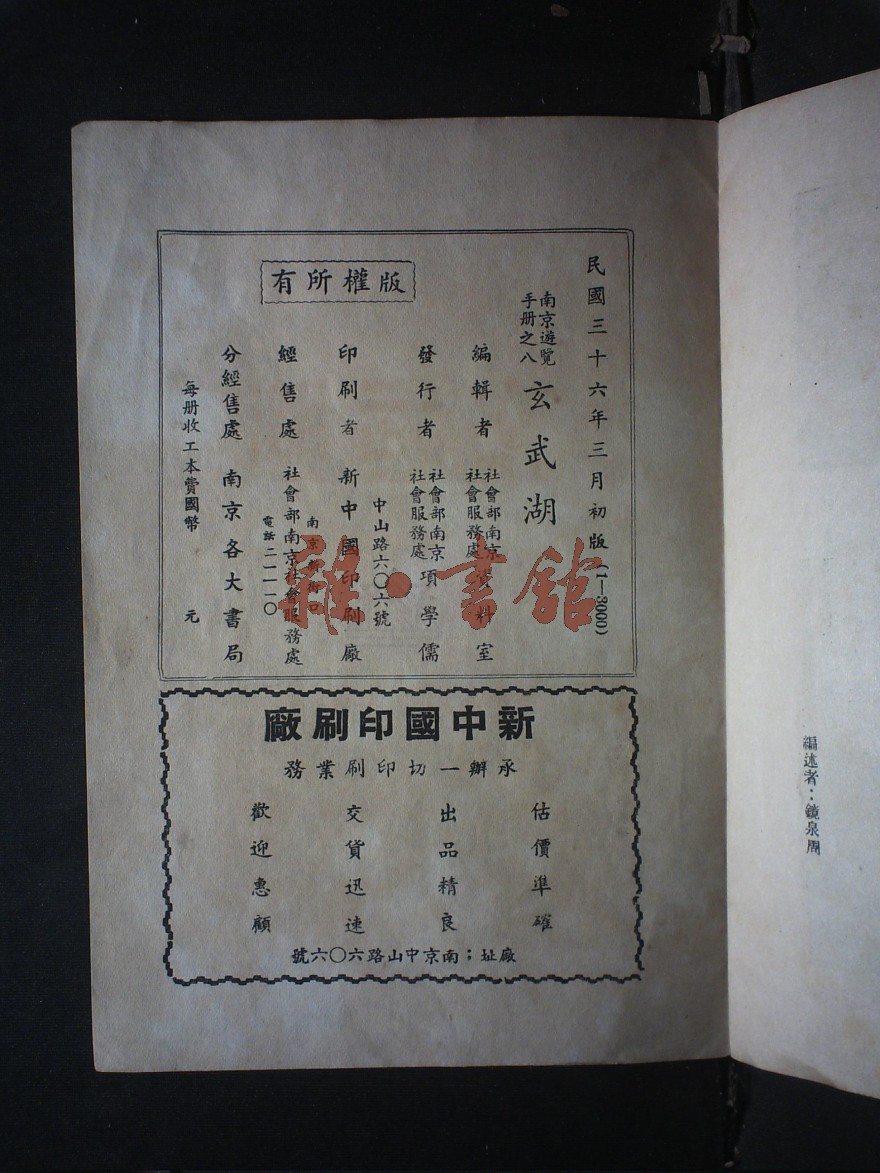 編述者：鏡泉周
民國三十六年三月初版（1—3000）
南京遊覽
手册之八
玄武湖
編輯者 社會部南京
社會服務處 資料室
發行者 社會部南京
社會服務處 項學儒
中山路六〇六號
印刷者 新中國印刷廠
南京新街口
經售處 社會部南京社會服務處
電話二一一一〇
分經售處 南京各大書局
每册收工本費國幣 元
版權所有
新中國印刷廠
承辦一切印刷業務
估價準確
出品精良
交貨迅速
歡迎惠顧
廠址；南京中山路六〇六號
雜·書館